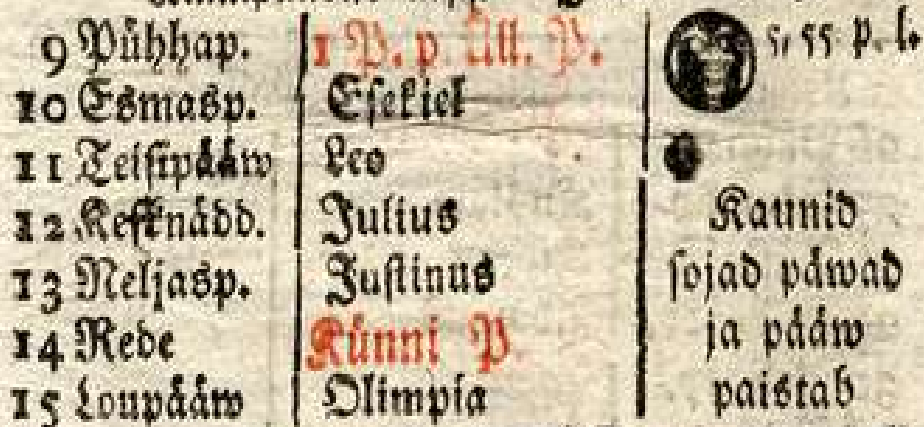 9 Pühhap. 1 P. p. All. P. 5, 55 p. l.
10 Esmasp. Esekiel
11 Teisipääw Leo
12 Kesknädd. Julius Kaunid
13 Neljasp. Justinus sojad päwad
14 Rede Künni P. ja pääw
15 Loupääw Olimpia paistab